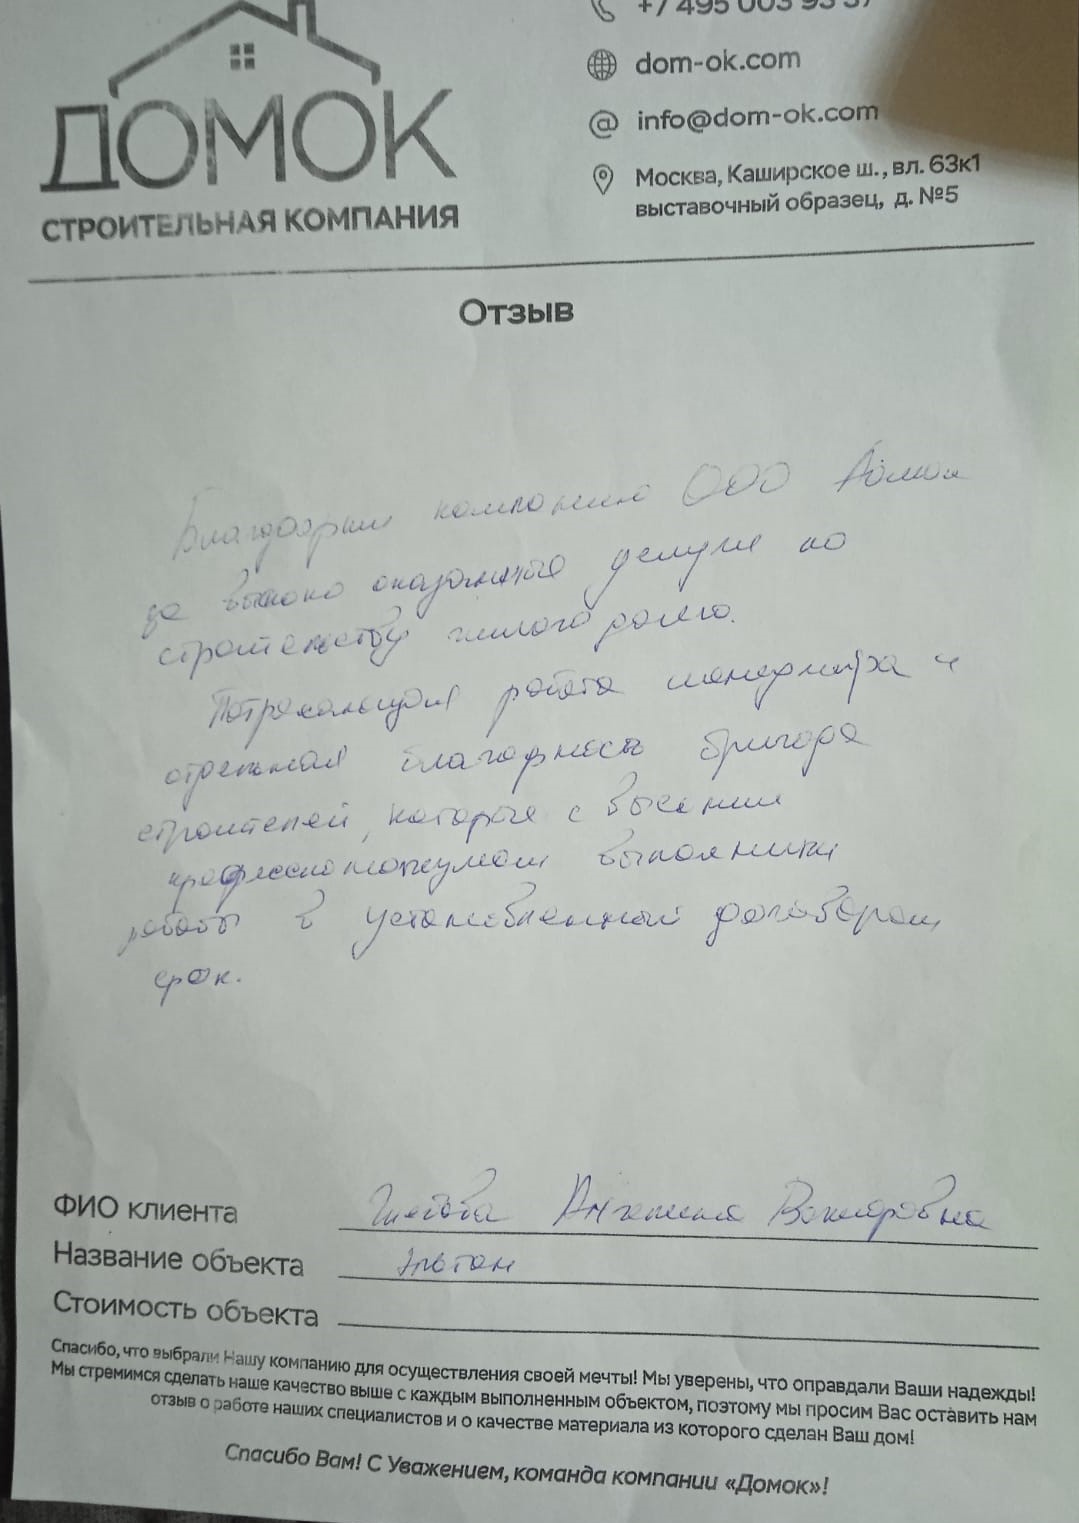 +7 495 003 93 37
ДОМОК
dom-ok.com
info@dom-ok.com
Москва, Каширское ш., вл. 63к1
выставочный образец, д. №5
СТРОИТЕЛЬНАЯ КОМПАНИЯ
Отзыв
Благодарим компанию ООО Домок
за высоко оказанные услуги по
строительству жилого дома.
Потрясающая работа менеджера и
отдельная благодарность бригаде
строителей, которые с высоким
профессионализмом выполнили
работы в установленный договором
срок.
ФИО клиента Ангелина
Название объекта Эльтон
Стоимость объекта
Спасибо, что выбрали Нашу компанию для осуществления своей мечты! Мы уверены, что оправдали Ваши надежды!
Мы стремимся сделать наше качество выше с каждым выполненным объектом, поэтому мы просим Вас оставить нам
отзыв о работе наших специалистов и о качестве материала из которого сделан Ваш дом!
Спасибо Вам! С Уважением, команда компании «Домок»!